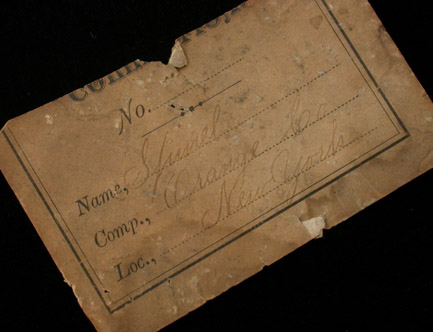 No.
Name, Spinel
Comp., Orange Co
Loc., New York